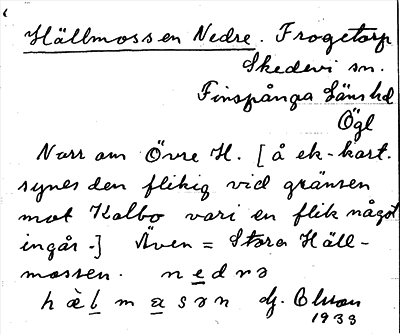 Hällmossen Nedre. Frogetorp
Skedevi sn.
Finspånga Läns hd
Ögl
Norr om Övre H. [å ek-kart.
synes den flikig vid gränsen
mot Kalbo vari en flik något
ingår-] Även = Stora Häll-
mossen. nedrə
hàlmasən Hj. Olsson
1933